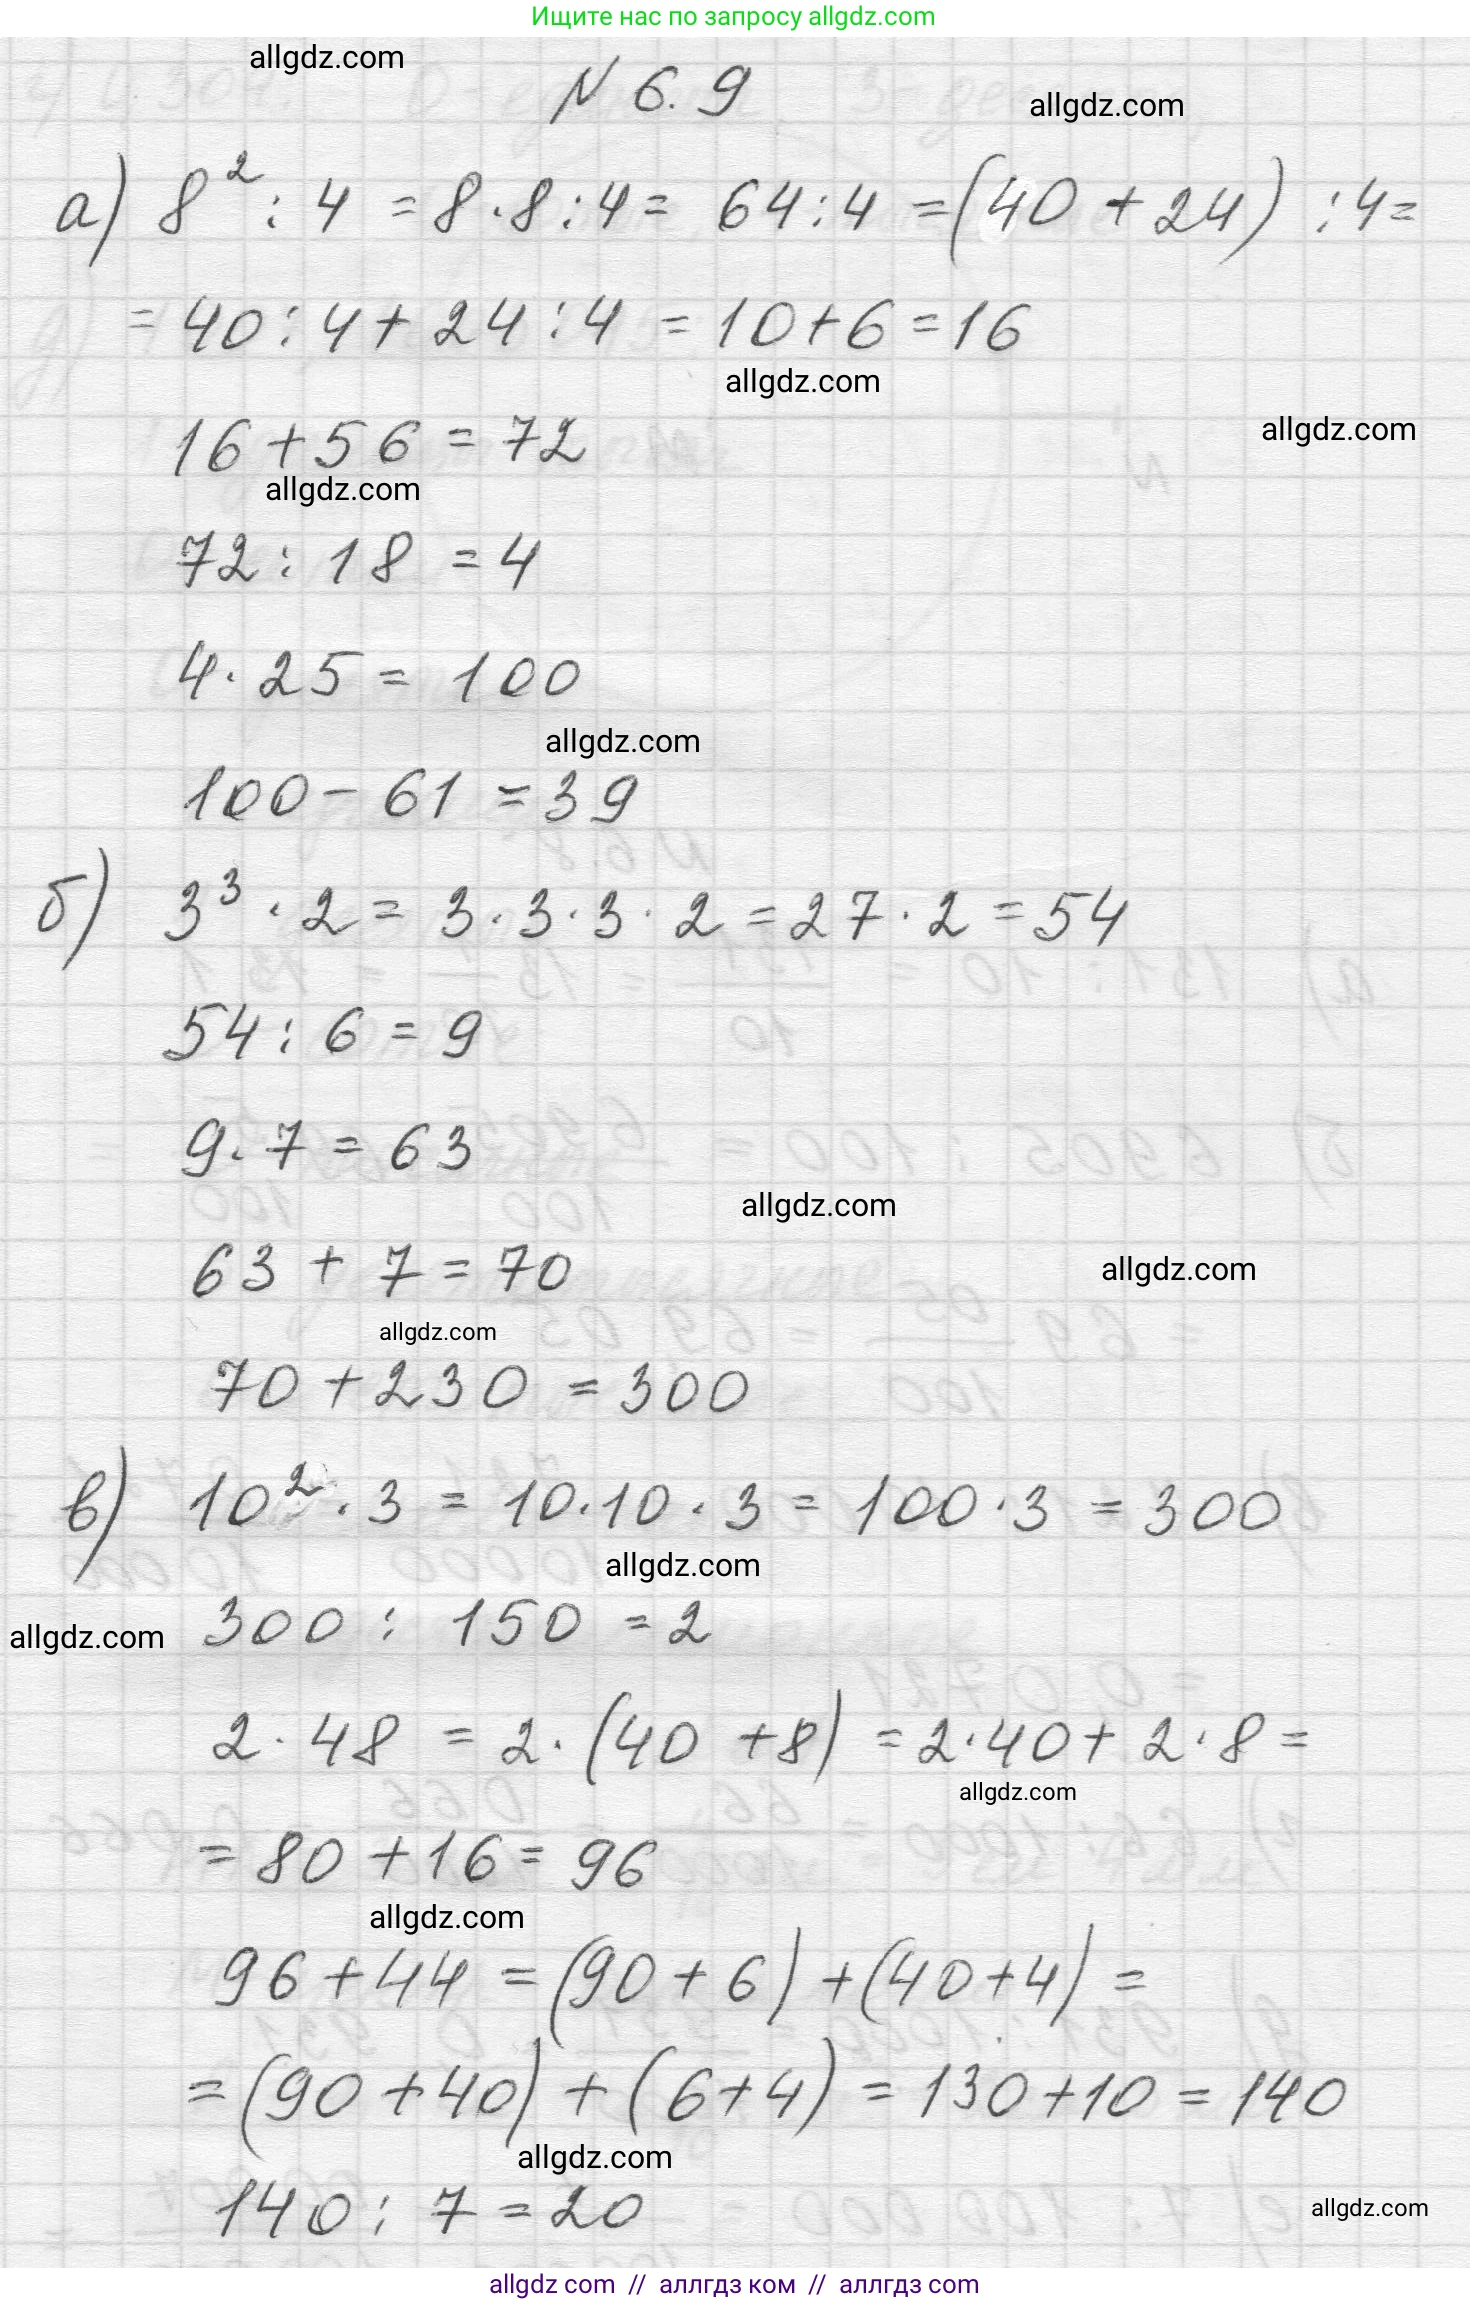 Ищите нас по запросу allgdz.com
allgdz.com
N 6.9
allgdz.com
а) 8² : 4 = 8·8:4 = 64:4 = (40 + 24) :4=
= 40:4 + 24:4 = 10+6 = 16
allgdz.com
allgdz.com
16+56 = 72
allgdz.com
72 : 18 = 4
4·25 = 100
allgdz.com
100 - 61 = 39
б) 3³ · 2 = 3·3·3·2 = 27·2 = 54
54 : 6 = 9
9·7 = 63
allgdz.com
63 + 7 = 70
allgdz.com
allgdz.com
70 + 230 = 300
в) 10² · 3 = 10·10·3 = 100·3 = 300
allgdz.com
300 : 150 = 2
allgdz.com
2·48 = 2·(40 +8) = 2·40+2·8 =
allgdz.com
= 80 +16 = 96
allgdz.com
96+44 = (90+6) + (40+4) =
= (90 +40) + (6+4) = 130+10 = 140
allgdz.com
140 : 7 = 20
allgdz.com
allgdz com // аллгдз ком // аллгдз com